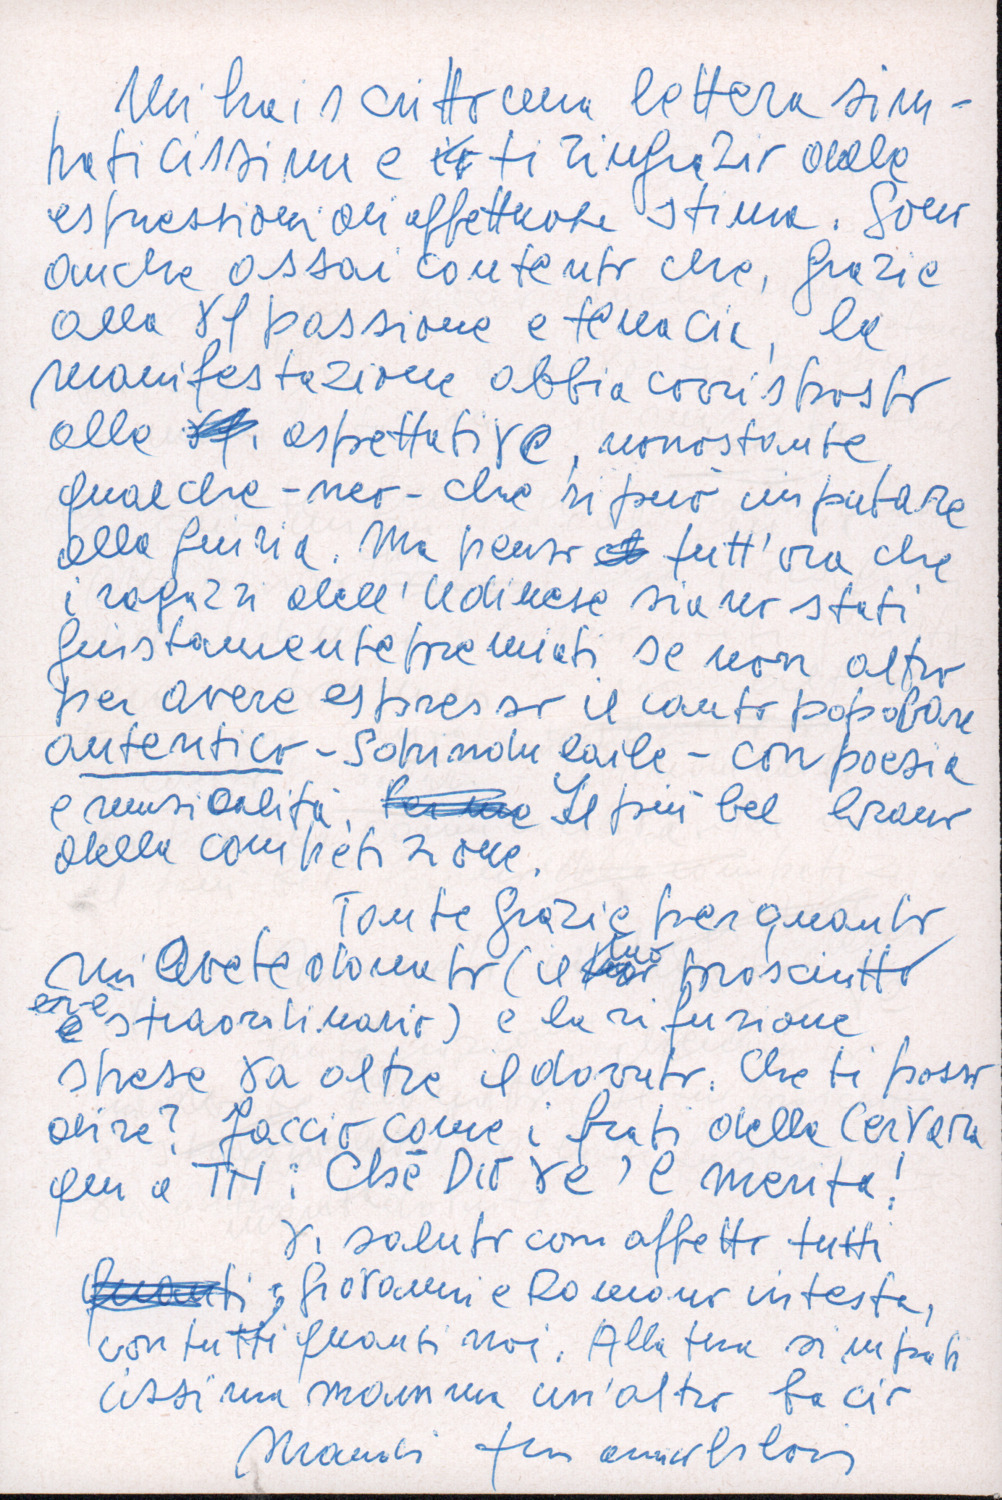 Mi hai scritto una lettera sim-
paticissima e ti ringrazio delle
espressioni di affettuosa stima. Sono
anche assai contento che, grazie
alla Vs passione e tenacia, la
manifestazione abbia corrisposto
alle aspettative, nonostante
qualche - neo - che si può imputare
alla giuria. Ma penso tutt'ora che
i ragazzi dell'Udinese siano stati
giustamente premiati se non altro
per avere espresso il canto popolare
autentico - - con poesia
e musicalità. Il più bel brano
della competizione.
Tante grazie per quanto
mi avete donato (il tuo prosciutto
era straordinario) e la rifusione
spese va oltre il dovuto. Che ti posso
dire? Faccio come i frati della Cervara
qui a TN: Che Dio ve 'l merita!
Vi saluto con affetto tutti
quanti, Giovanni e Romano in testa,
con tutti quanti noi. Alla tua simpati
cissima mamma un'altro bacio
Mandi